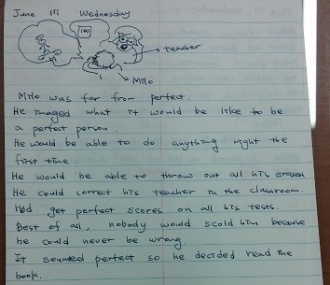 June 17 Wednesday
100
teacher
Milo
Milo was far from perfect.
He imaged what it would be like to be
a perfect person.
He would be able to do anything right the
first time.
He would be able to throw out all his erasers
He could correct his teacher in the classroom.
He'd get perfect scores on all his tests.
Best of all, nobody would scold him because
he could never be wrong.
It sounted perfect so he decided read the
book.